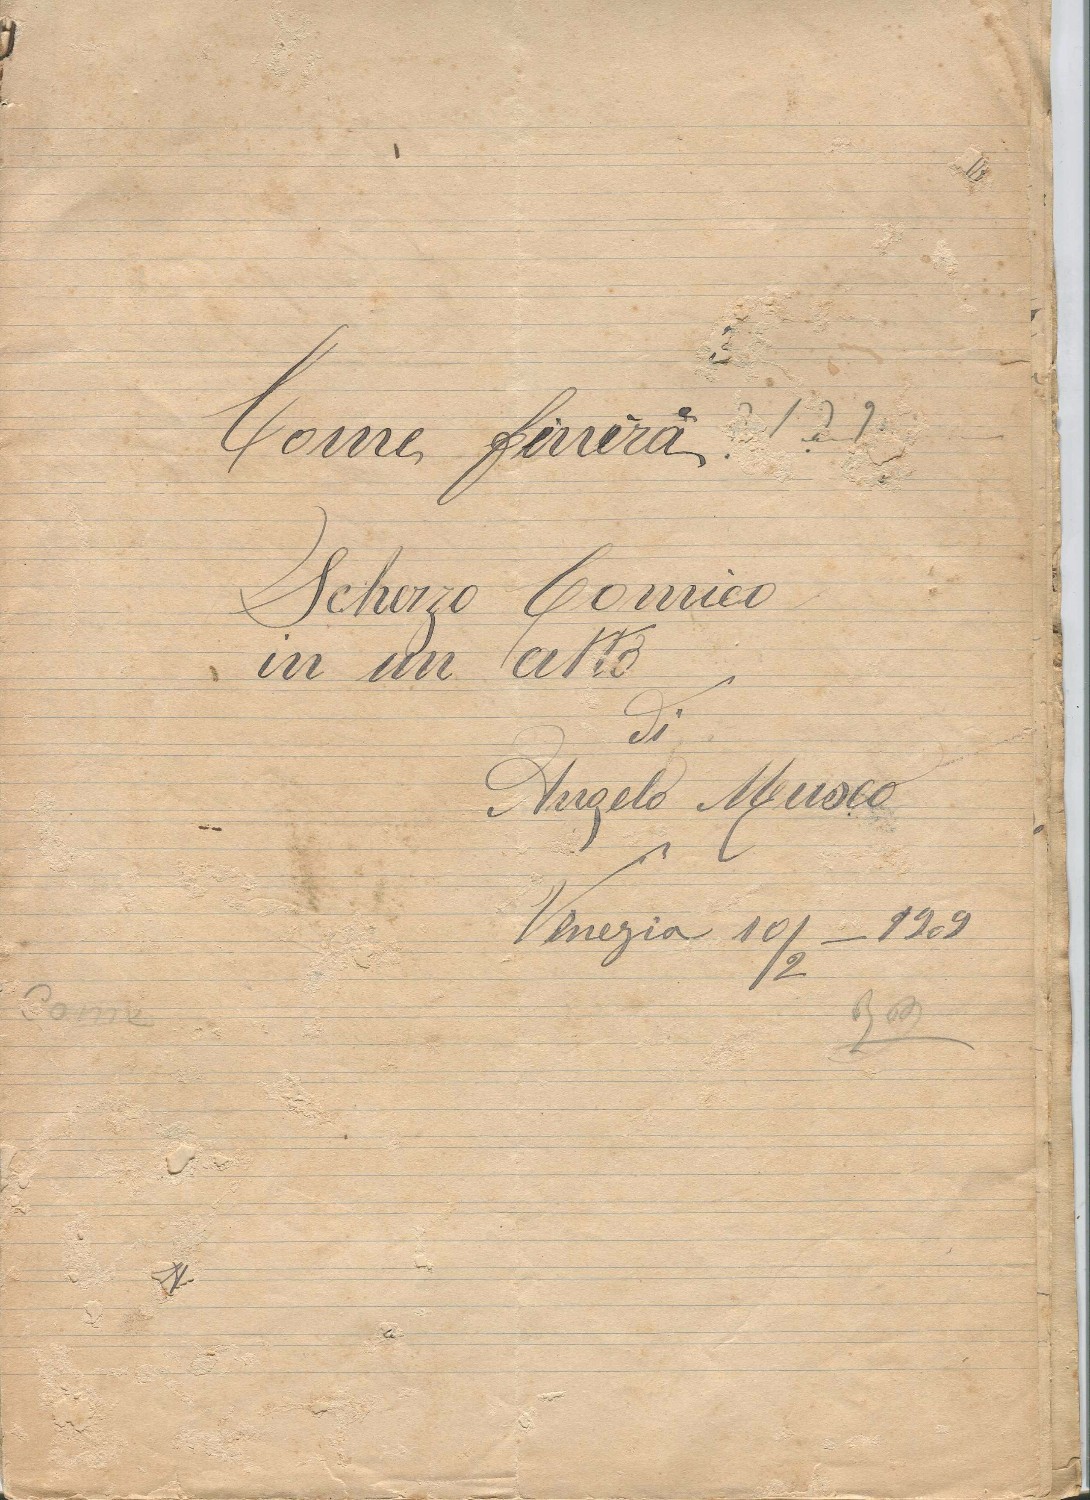 Come finirà
Scherzo Comico
in un atto
di
Angelo Musco
Venezia 10/2 – 1909
Come